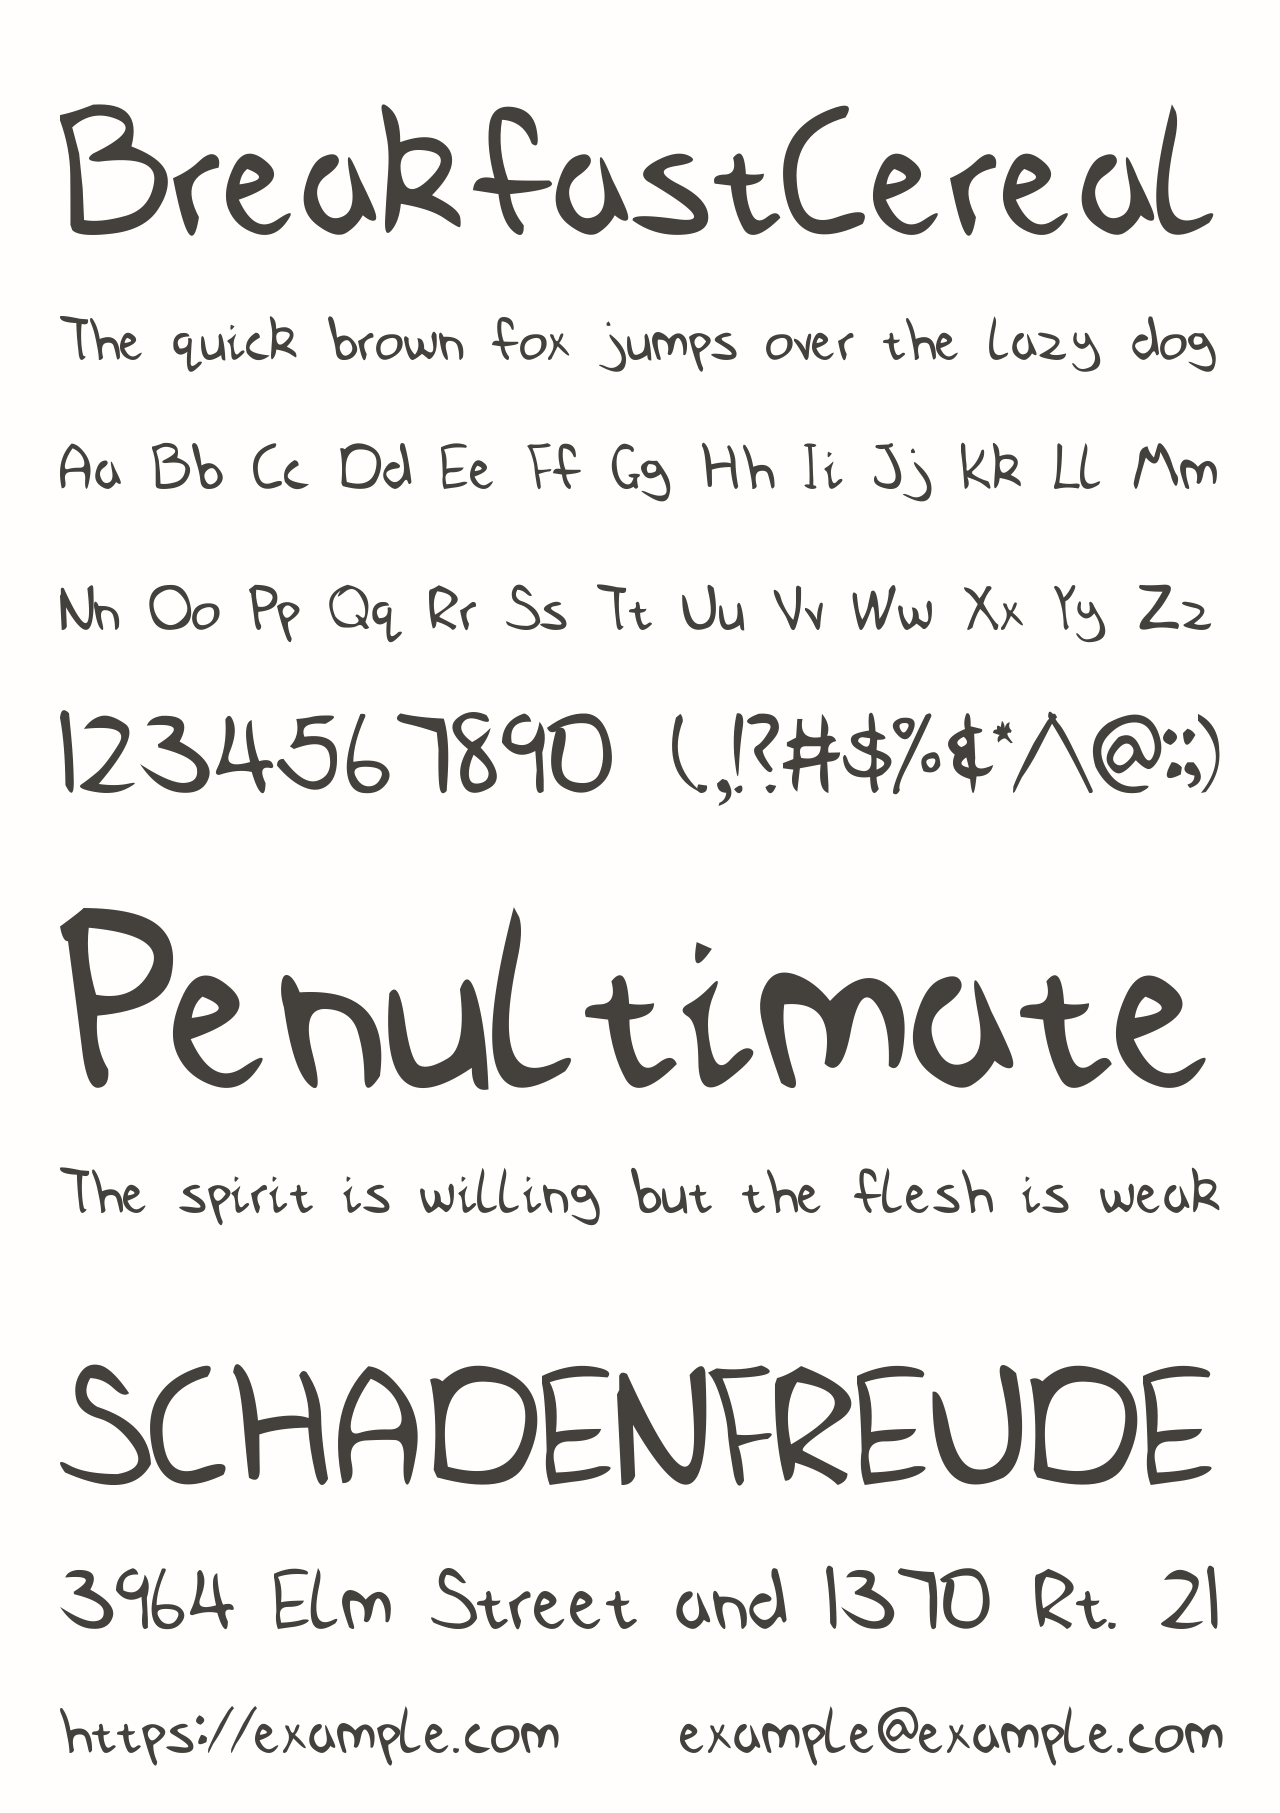 BreakfastCereal
The quick brown fox jumps over the lazy dog
Aa Bb Cc Dd Ee Ff Gg Hh Ii Jj Kk Ll Mm
Nn Oo Pp Qq Rr Ss Tt Uu Vv Ww Xx Yy Zz
1234567890 (.,!?#$%&*/\@:;)
Penultimate
The spirit is willing but the flesh is weak
SCHADENFREUDE
3964 Elm Street and 1370 Rt. 21
https://example.com example@example.com